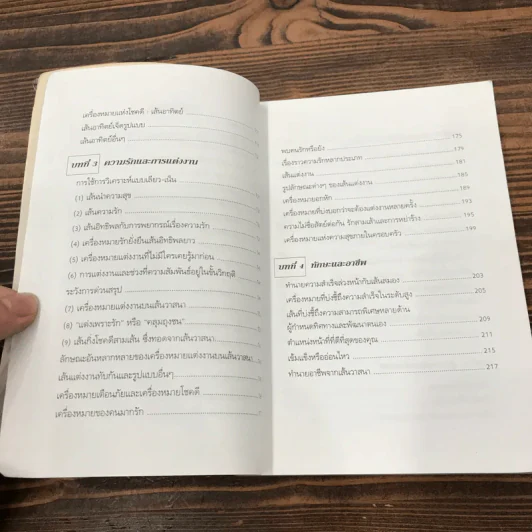 เครื่องหมายแห่งโชคดี : เส้นอาทิตย์
เส้นอาทิตย์เจ็ดรูปแบบ
เส้นอาทิตย์อื่นๆ
บทที่ 3 ความรักและการแต่งงาน
การใช้การวิเคราะห์แบบเลียว-เน้น
(1) เส้นนำความสุข
(2) เส้นความรัก
(3) เส้นอิทธิพลกับการพยากรณ์เรื่องความรัก
(4) เครื่องหมายรักยั่งยืนเส้นอิทธิพลยาว
(5) เครื่องหมายแต่งงานที่ไม่มีใครเคยรู้มาก่อน
(6) การแต่งงานและช่วงที่ความสัมพันธ์อยู่ในขั้นวิกฤติ
ระวังการด่วนสรุป
(7) เครื่องหมายแต่งงานบนเส้นวาสนา
(8) "แต่งเพราะรัก" หรือ "คลุมถุงชน"
(9) เส้นกิ่งโชคดีสามเส้น ซึ่งทอดจากเส้นวาสนา
ลักษณะอันหลากหลายของเครื่องหมายแต่งงานบนเส้นวาสนา
เส้นแต่งงานทับกันและรูปแบบอื่นๆ
เครื่องหมายเตือนภัยและเครื่องหมายโชคดี
เครื่องหมายของคนมากรัก
พบคนรักหรือยัง 175
เรื่องราวความรักหลากประเภท 179
เส้นแต่งงาน 181
รูปลักษณะต่างๆ ของเส้นแต่งงาน 185
เครื่องหมายอกหัก 189
เครื่องหมายที่บ่งบอกว่าจะต้องแต่งงานหลายครั้ง 193
ความไม่ซื่อสัตย์ต่อกัน รักสามเส้าและการหย่าร้าง 195
เครื่องหมายแห่งความสุขภายในครอบครัว 199
บทที่ 4 ทักษะและอาชีพ
ทำนายความสำเร็จล่วงหน้ากับเส้นสมอง 203
เครื่องหมายที่บ่งชี้ถึงความสำเร็จในระดับสูง 205
เส้นที่บ่งชี้ถึงความสามารถพิเศษหลายด้าน
ผู้กำหนดทิศทางและพัฒนาตนเอง 209
ตำแหน่งหน้าที่ที่ดีที่สุดของคุณ 211
เข้มแข็งหรืออ่อนไหว 215
ทำนายอาชีพจากเส้นวาสนา 217